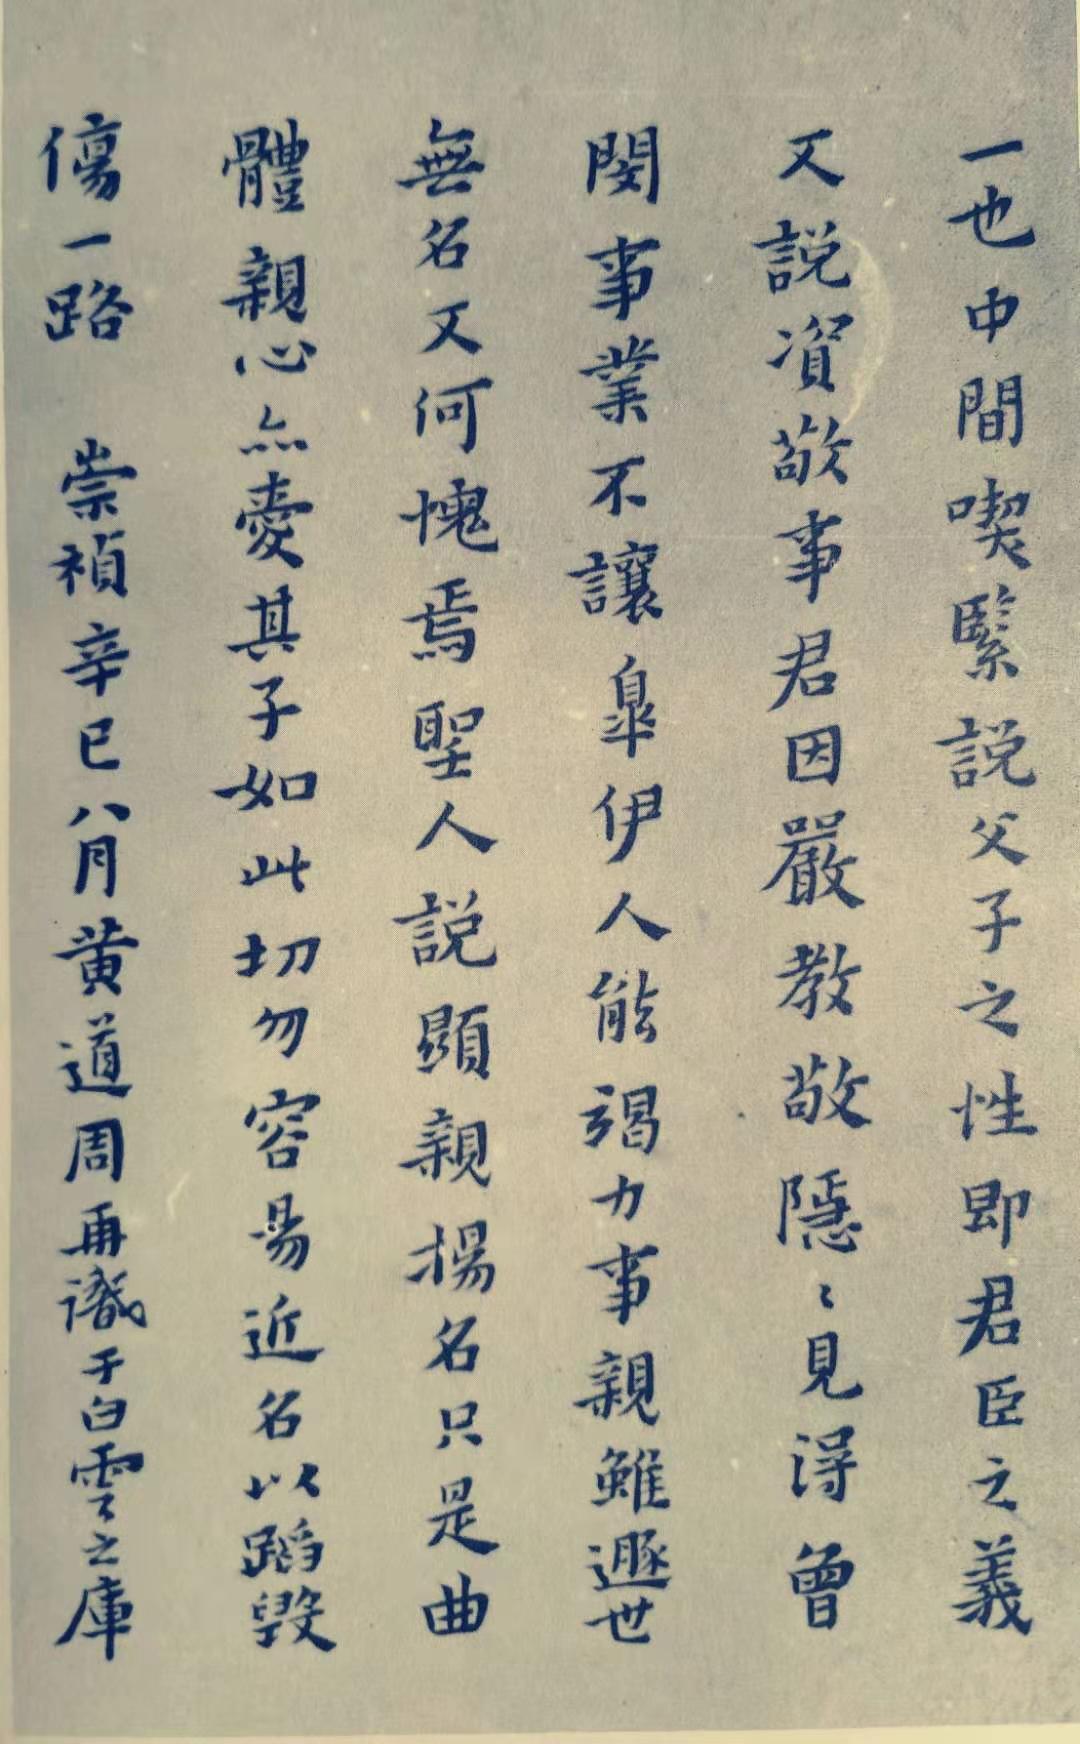 一也中間喫緊說父子之性即君臣之義
又說資敬事君因嚴教敬隱〻見得曾
閔事業不讓臯伊人能竭力事親雖遯世
無名又何愧焉聖人說顯親揚名只是曲
體親心亦愛其子如此切勿容易近名以蹈毀
傷一路 崇禎辛巳八月黄道周再識于白雲之庫